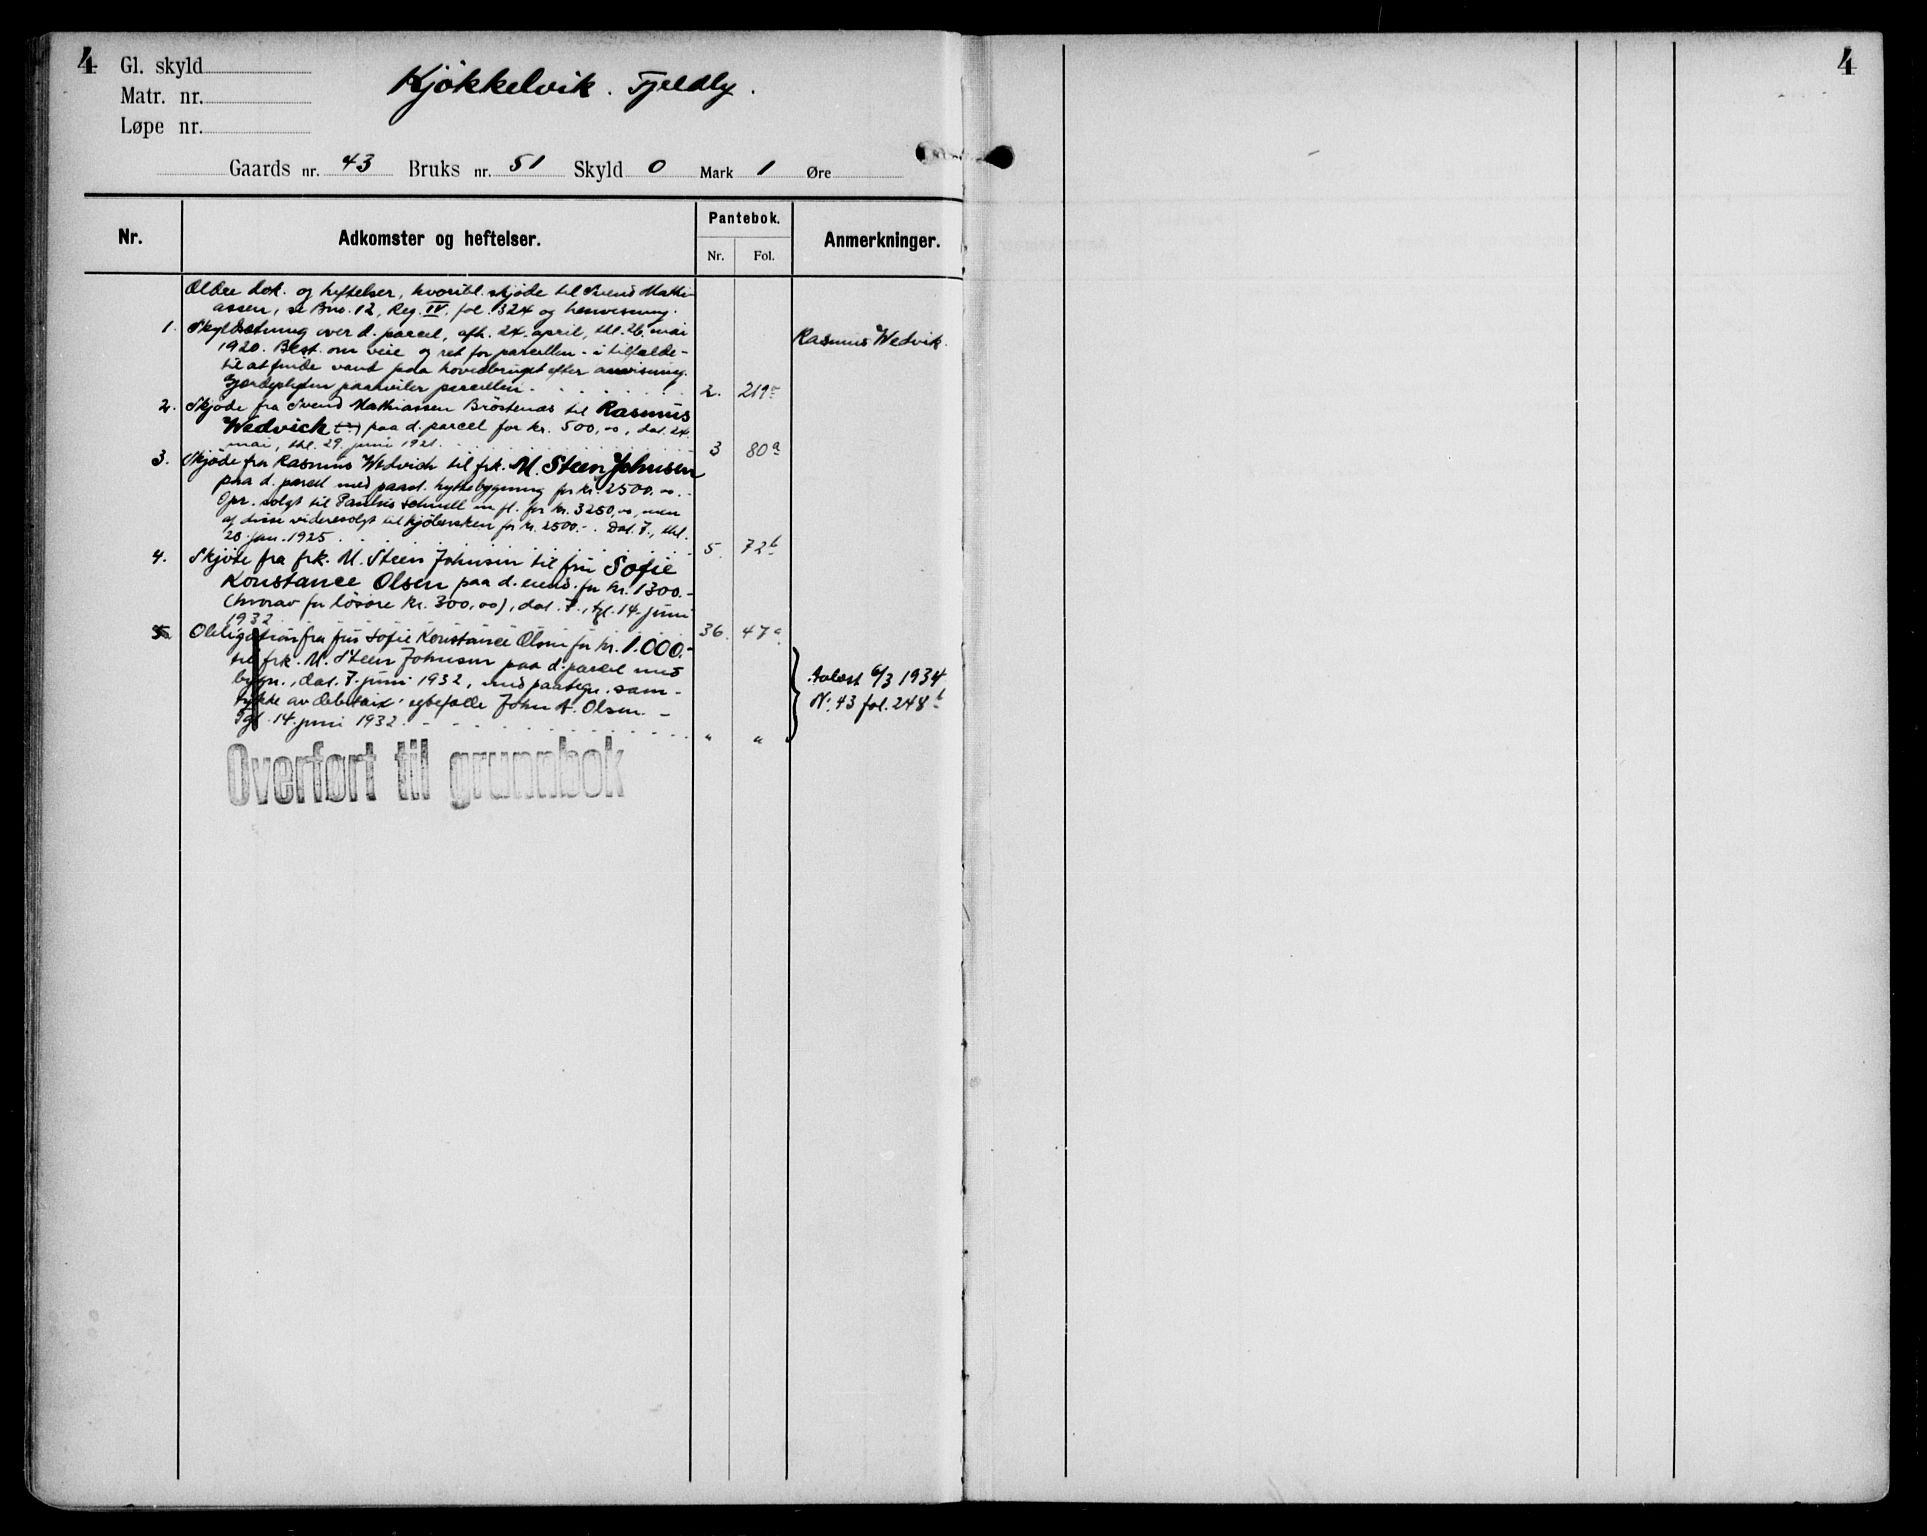 4
4
Gl. skyld
Matr. nr.
Løpe nr.
Kjökkelvik. Fjeldly.
Gaards nr. 43 Bruks nr. 51 Skyld 0 Mark 1 Øre
Nr. Adkomster og heftelser. Pantebok. Anmerkninger.
Nr. Fol.
Ældre dok. og heftelser, hvoribl. skjöde til Svend Mathi-
assen, se Bno. 12, Reg. IV. fol. 324 og henvisning.
1. Skyldsetning over d. parcel, afh. 24. april, thl. 26. mai
1920. Best. om veie og ret for parcellen - i tilfælde -
til at finde vand paa hovedbruget efter anvisning.
Gjærdepligten paahviler parcellen. 2. 219
Rasmus Wedvik.
2. Skjöde fra Svend Mathiassen Bröstenæs til Rasmus
Wedvick paa d. parcel for kr. 500,00, dat. 24.
mai, thl. 29. juni 1921. 3 80a
3. Skjöde fra Rasmus Wedvick til frk. M. Steen Johnsen
paa d. parcel med paast. hyttebygning for kr. 2500.00. -
Opr. solgt til Paulus Schnell m fl. for kr. 3250,00, men
af disse videresolgt til kjöbersken for kr. 2500.-. Dat. 7., thl.
20. jan. 1925. 5. 72b
4. Skjöte fra frk. M. Steen Johnsen til fru Sofie
Konstance Olsen paa d. eiend. for kr. 1300.-
(hvorav for lösöre kr. 300,00), dat. 7., tgl. 14. juni
1932 36. 47a
5. Obligation fra fru Sofie Konstance Olsen for kr. 1.000.-
til frk. M. Steen Johnsen paa d. parcel med
bygn., dat. 7. juni 1932, med paategn. sam-
tykke av debitors egtefælle John A. Olsen -
Tgl. 14. juni 1932. " "
Avlest 6/3 1934
N: 43 fol. 248b
Overført til grunnbok